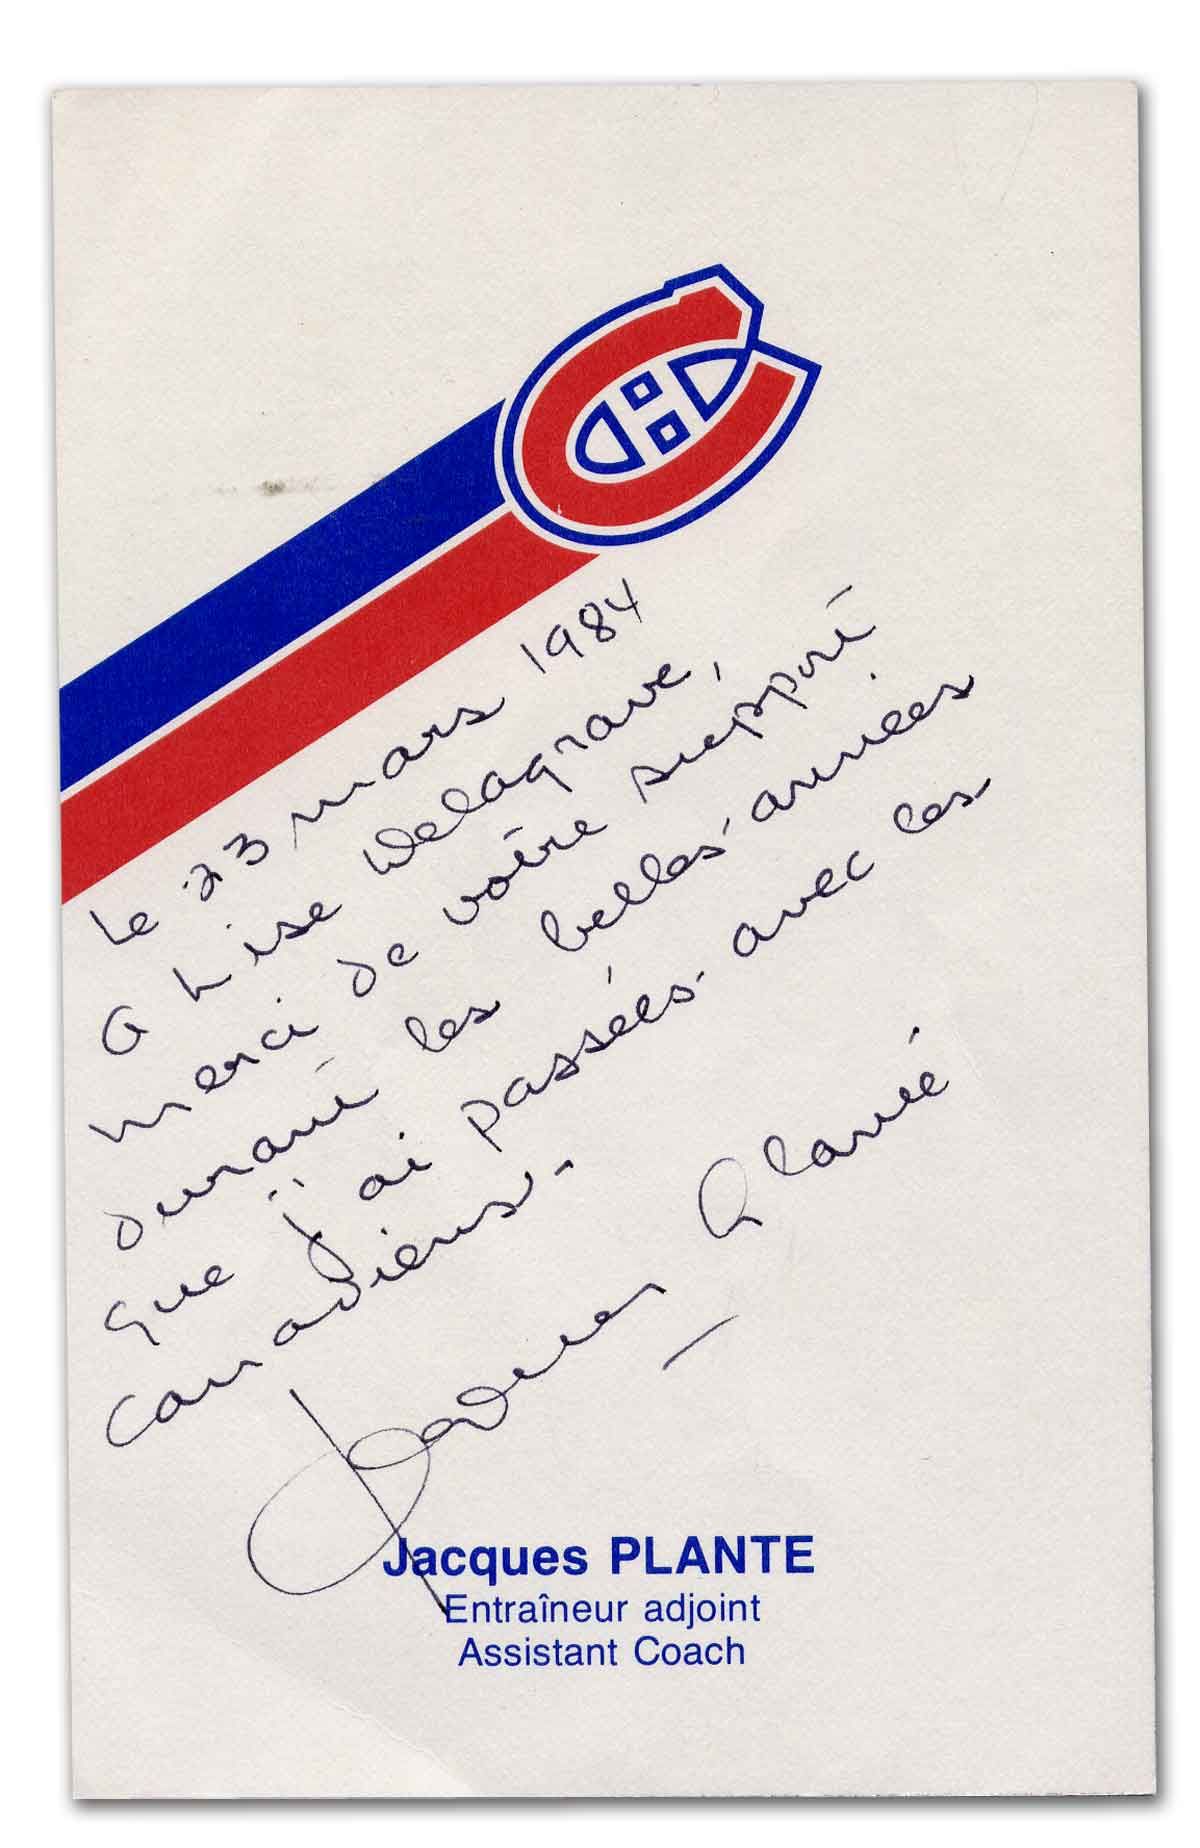 le 23 mars 1984
a Lise Delagrave,
merci de votre support
durant les belles années
que j'ai passées avec les
canadiens.
Jacques Plante
Jacques PLANTE
Entraîneur adjoint
Assistant Coach